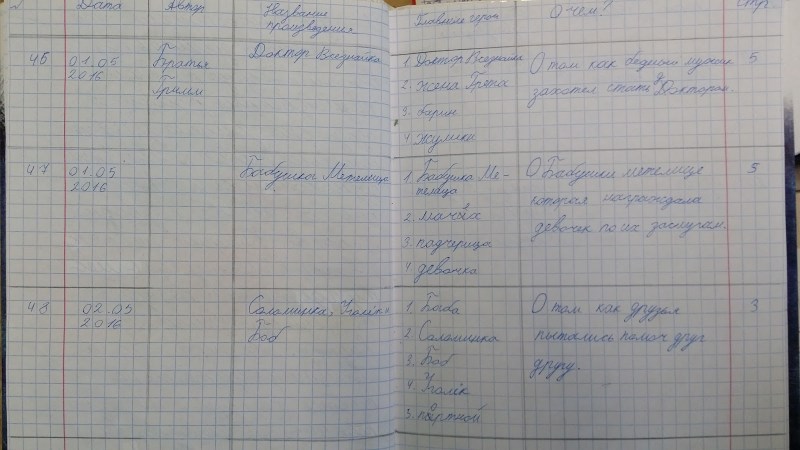 № Дата Автор Название произведения Главные герои О чём? Стр.
46 01.05 2016 Братья Гримм Доктор Всезнайка
1. Доктор Всезнайка
2. жена Грета
3. барин
4. жулики
О том как бедный мужик
захотел стать Доктором.
5
47 01.05 2016 Бабушка Метелица
1. Бабушка Ме-
телица
2. мачеха
3. падчерица
4. девочка
О Бабушки метелице
которая награждала
девочек по их заслугам.
5
48 02.05 2016 Соломинка, Уголёк и
Боб
1. Баба
2. Соломинка
3. Боб
4. Уголёк
5. портной
О том как друзья
пытались помоч друг
другу.
3